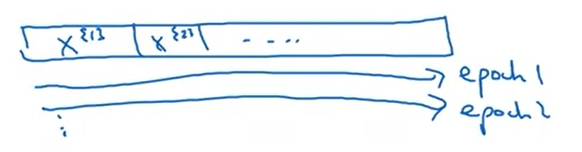 X^{1} X^{2} ....
epoch 1
epoch 2
⋮